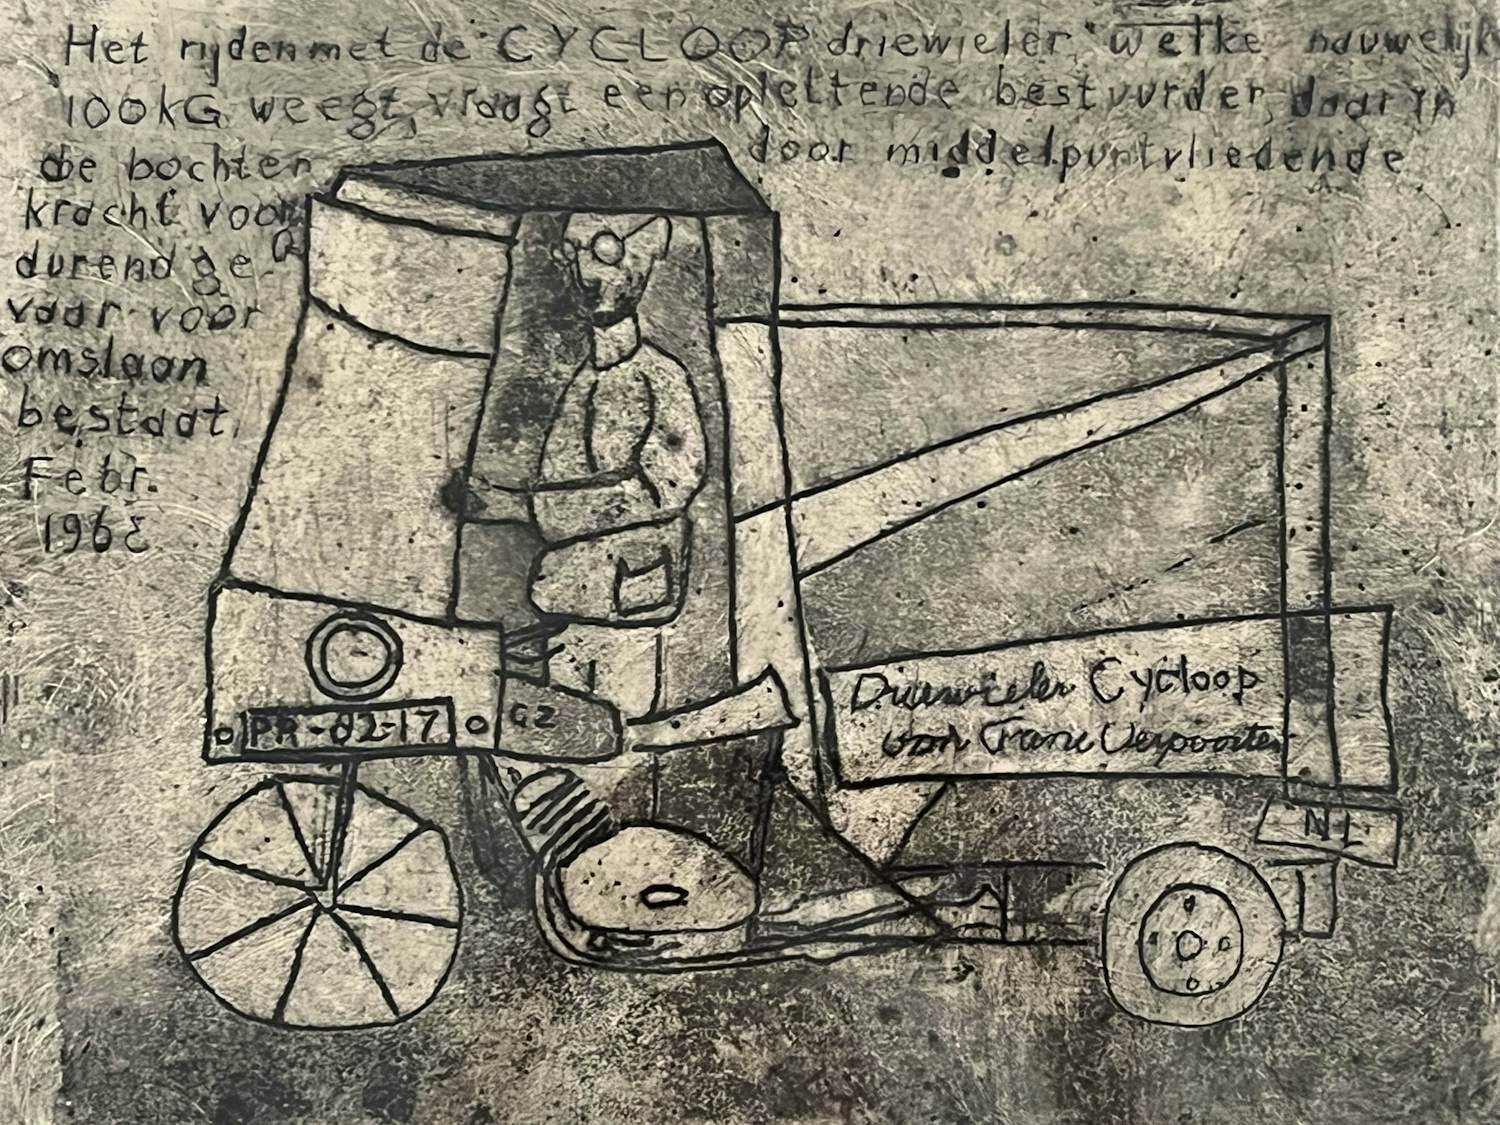 Het rijden met de CYCLOOP driewieler, welke nauwelijk
100kG weegt, vraagt een oplettende bestuurder, daar in
de bochten door middelpuntvliedende
kracht voor
durend ge
vaar voor
omslaan
bestaat.
Febr.
1963
PR-82-17
G2
Driewieler Cycloop
van Frans Verpoorten
NL